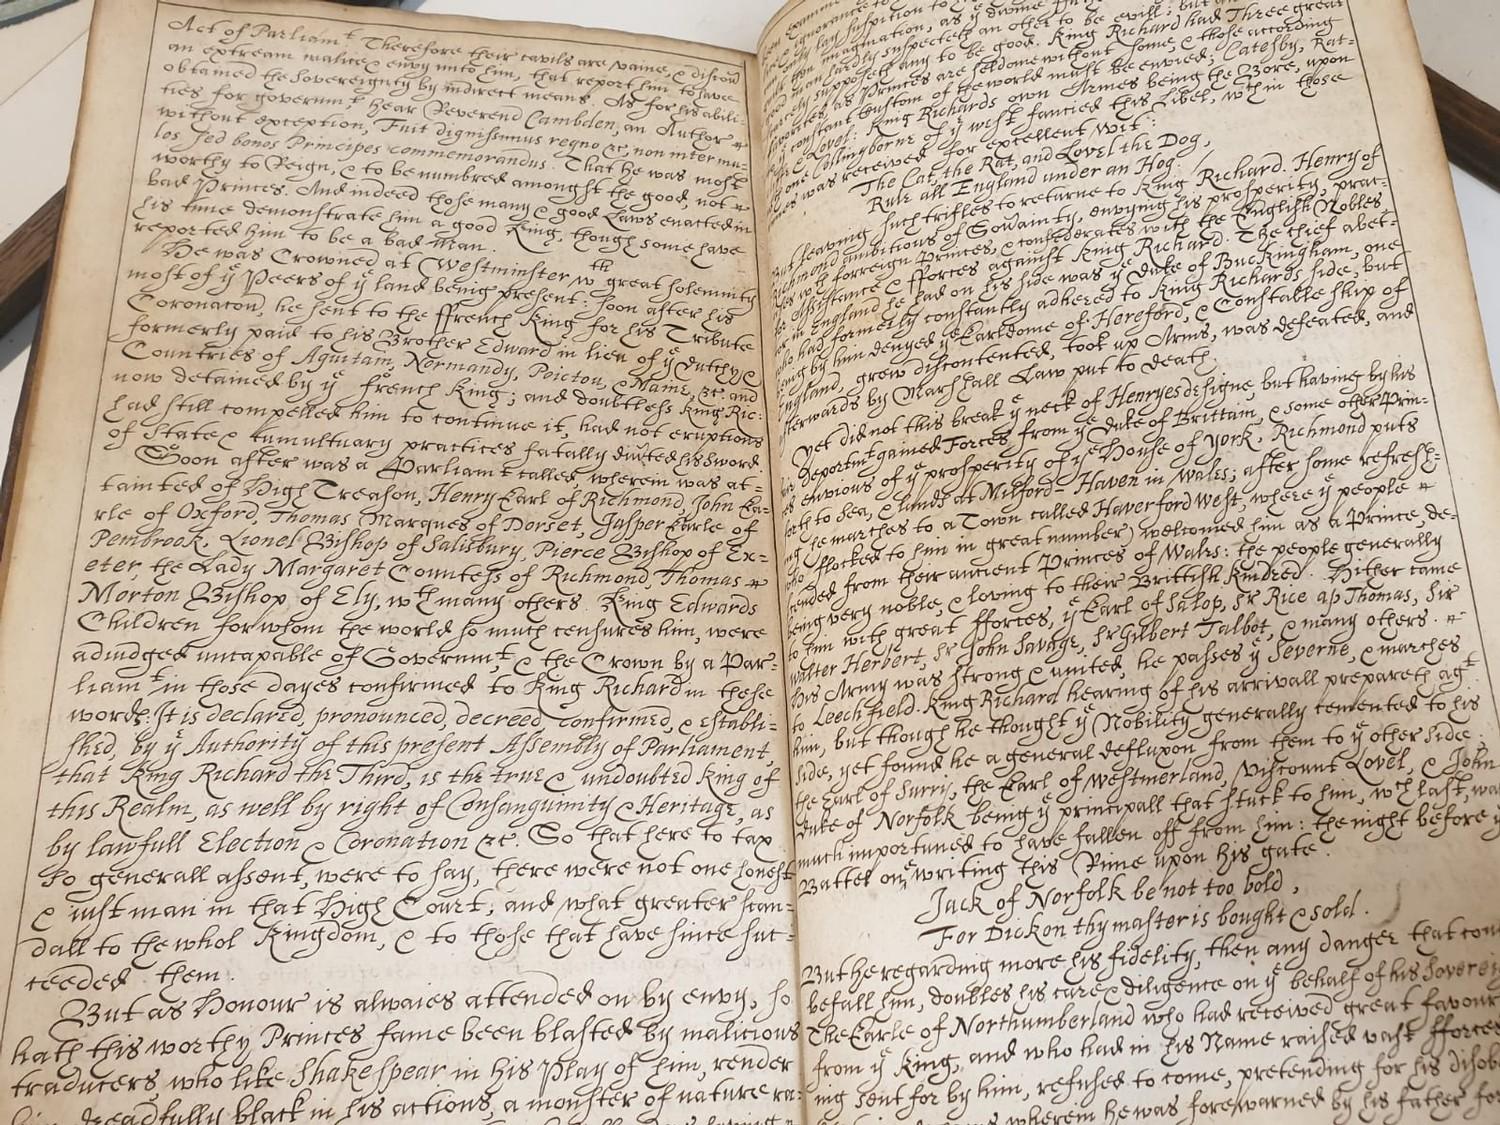 Act of Parliamt. Therefore their cavils are vaine, & discou
an extream malice & envy unto him, that report him to have
obtained the Sovereignty by indirect means. As for his abili-
ties for governmt. hear Reverend Cambden, an Author
without exception, Fuit dignissimus regno &c, non inter ma-
los sed bonos Principes commemorandus. That he was most
worthy to Reign, & to be numbred amongst the good, not
bad Princes. And indeed those many & good Laws enacted in
his time demonstrate him a good King, though some have
reported him to be a bad Man.
He was Crowned at Westminster wth great solemnity
most of ye Peers of ye land being present: soon after his
Coronaton, he sent to the ffrench King for his Tribute
formerly paid to his Brother Edward in lieu of ye Dutchy, &
Countries of Aquitain, Normandy, Poictou, & Maine, &c. and
now detained by ye french King; and doubtless King Ric:
had still compelled him to continue it, had not eruptions
of State & tumultuary practices fatally diverted his sword.
Soon after was a Parliamt called, wherein was at-
tainted of High Treason, Henry Earl of Richmond, John Ea-
rle of Oxford, Thomas Marques of Dorset, Jasper Earle of
Pembrook, Lionel Bishop of Salisbury, Pierce Bishop of Ex=
eter, the Lady Margaret Countess of Richmond, Thomas
Morton Bishop of Ely, wth many others. King Edwards
Children for whom the world so much censures him, were
adiudged uncapable of Governmt, & the Crown by a Par-
liamt in those dayes confirmed to King Richard in these
words: It is declared, pronounced, decreed, confirmed, & establi-
shed, by ye Authority of this present Assembly of Parliament,
that King Richard the Third, is the true & undoubted King of
this Realm, as well by right of Consanguinity & Heritage, as
by lawfull Election & Coronation &c. So that here to tax
so generall assent, were to say, there were not one honest
& iust man in that High Court; and what greater scan-
dall to the whol Kingdom, & to those that have since suc-
ceeded them.
But as Honour is alwaies attended on by envy, so
hath this worthy Princes fame been blasted by malicious
traducers, who like Shakespear in his Play of him, render
him dreadfully black in his actions, a monster of nature ra-
imagination, as ye divine
hardly suspecteth an other to be evill; but an
supposeth any to be good. King Richard had Three great
favorites, as Princes are seldome without some, & those according
constant custom of the world must be envied; Catesby, Rat-
& Lovel: King Richards own Armes being the Bore, upon
one Collingborne of ye west fancied this Libel, wch in those
was received for excellent wit:
The Cat, the Rat, and Lovel the Dog,
Rule all England under an Hog.
But leaving such trifles to returne to King Richard. Henry of
Richmond ambitious of Sovainty, envying his prosperity, prac-
wth forreign Princes, & confederates with the English Nobles
Assistance & fforces against King Richard. The chief abet-
in England, he had on his side was ye Duke of Buckingham, one
who had formerly constantly adhered to King Richards side, but
being by him denyed ye Earldome of Hereford, & Constable ship of
England, grew discontented, took up Arms, was defeated, and
afterwards by Marshall Law put to death.
Yet did not this break ye neck of Henryes designe, but having by his
deportmt gained Forces from ye Duke of Brittain, & some other Prin-
envious of ye prosperity of ye House of York, Richmond puts
forth to sea, & lands at Milford-Haven in Wales; after some refresh-
he marches to a Town called Haverford West, where ye people
(who flocked to him in great number) welcomed him as a Prince, de-
cended from their ancient Princes of Wales: the people generally
being very noble, & loving to their Brittish kindred. Hither came
to him with great fforces, ye Earl of Salop, Sr Rice ap Thomas, Sir
Walter Herbert, Sr John Savage, Sr Gilbert Talbot, & many others.
his Army was strong & united, he passes ye Severne, & marches
to Leechfield. King Richard hearing of his arrivall prepareth agt
him, but though he thought ye Nobility generally cemented to his
side, yet found he a general defluxion from them to ye other side:
the Earl of Surry, the Earl of Westmerland, Viscount Lovel, & John
Duke of Norfolk being ye principall that stuck to him, wch last, was
much importuned to have fallen off from him: the night before ye
Battel one writing this Rime upon his gate.
Jack of Norfolk be not too bold,
For Dickon thy master is bought & sold.
But he regarding more his fidelity, then any danger that com
befall him, doubles his care & diligence on ye behalf of his Soverei
The Earle of Northumberland who had received great favour
from ye King, and who had in his Name raised vast fforces
ing sent for by him, refused to come, pretending for his disob
wherein he was forewarned by his father for